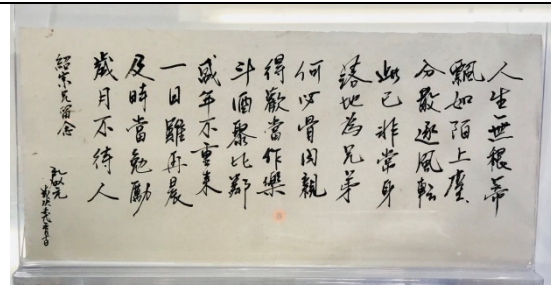 人生無根蒂
飄如陌上塵
分散逐風転
此已非常身
落地為兄弟
何必骨肉親
得歡當作樂
斗酒聚比鄰
盛年不重来
一日難再晨
及時當勉勵
歲月不待人
紹宗兄留念